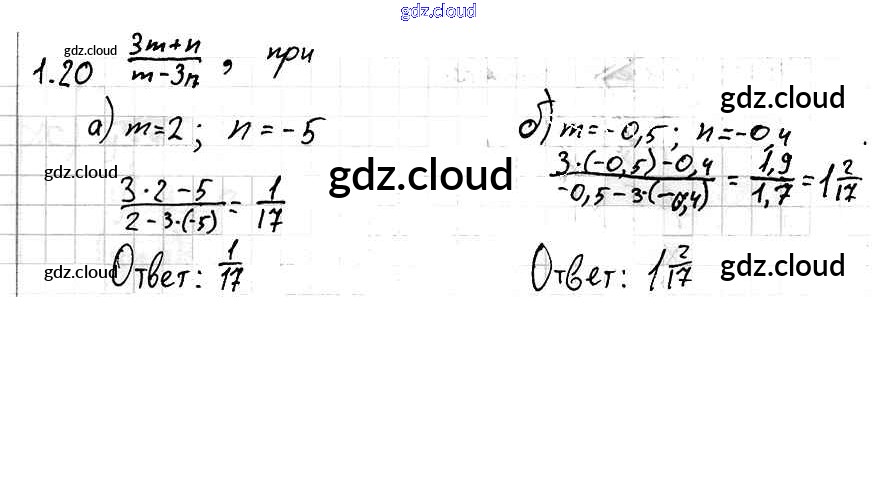 gdz.cloud
gdz.cloud
1.20 (3m+n)/(m-3n), при
gdz.cloud
а) m=2; n=-5
б) m=-0,5; n=-0,4
gdz.cloud
gdz.cloud
(3·2-5)/(2-3·(-5)) = 1/17
(3·(-0,5)-0,4)/(-0,5-3·(-0,4)) = 1,9/1,7 = 1 2/17
gdz.cloud
Ответ: 1/17
Ответ: 1 2/17
gdz.cloud